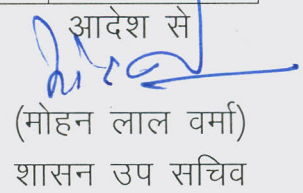 आदेश से
(मोहन लाल वर्मा)
शासन उप सचिव